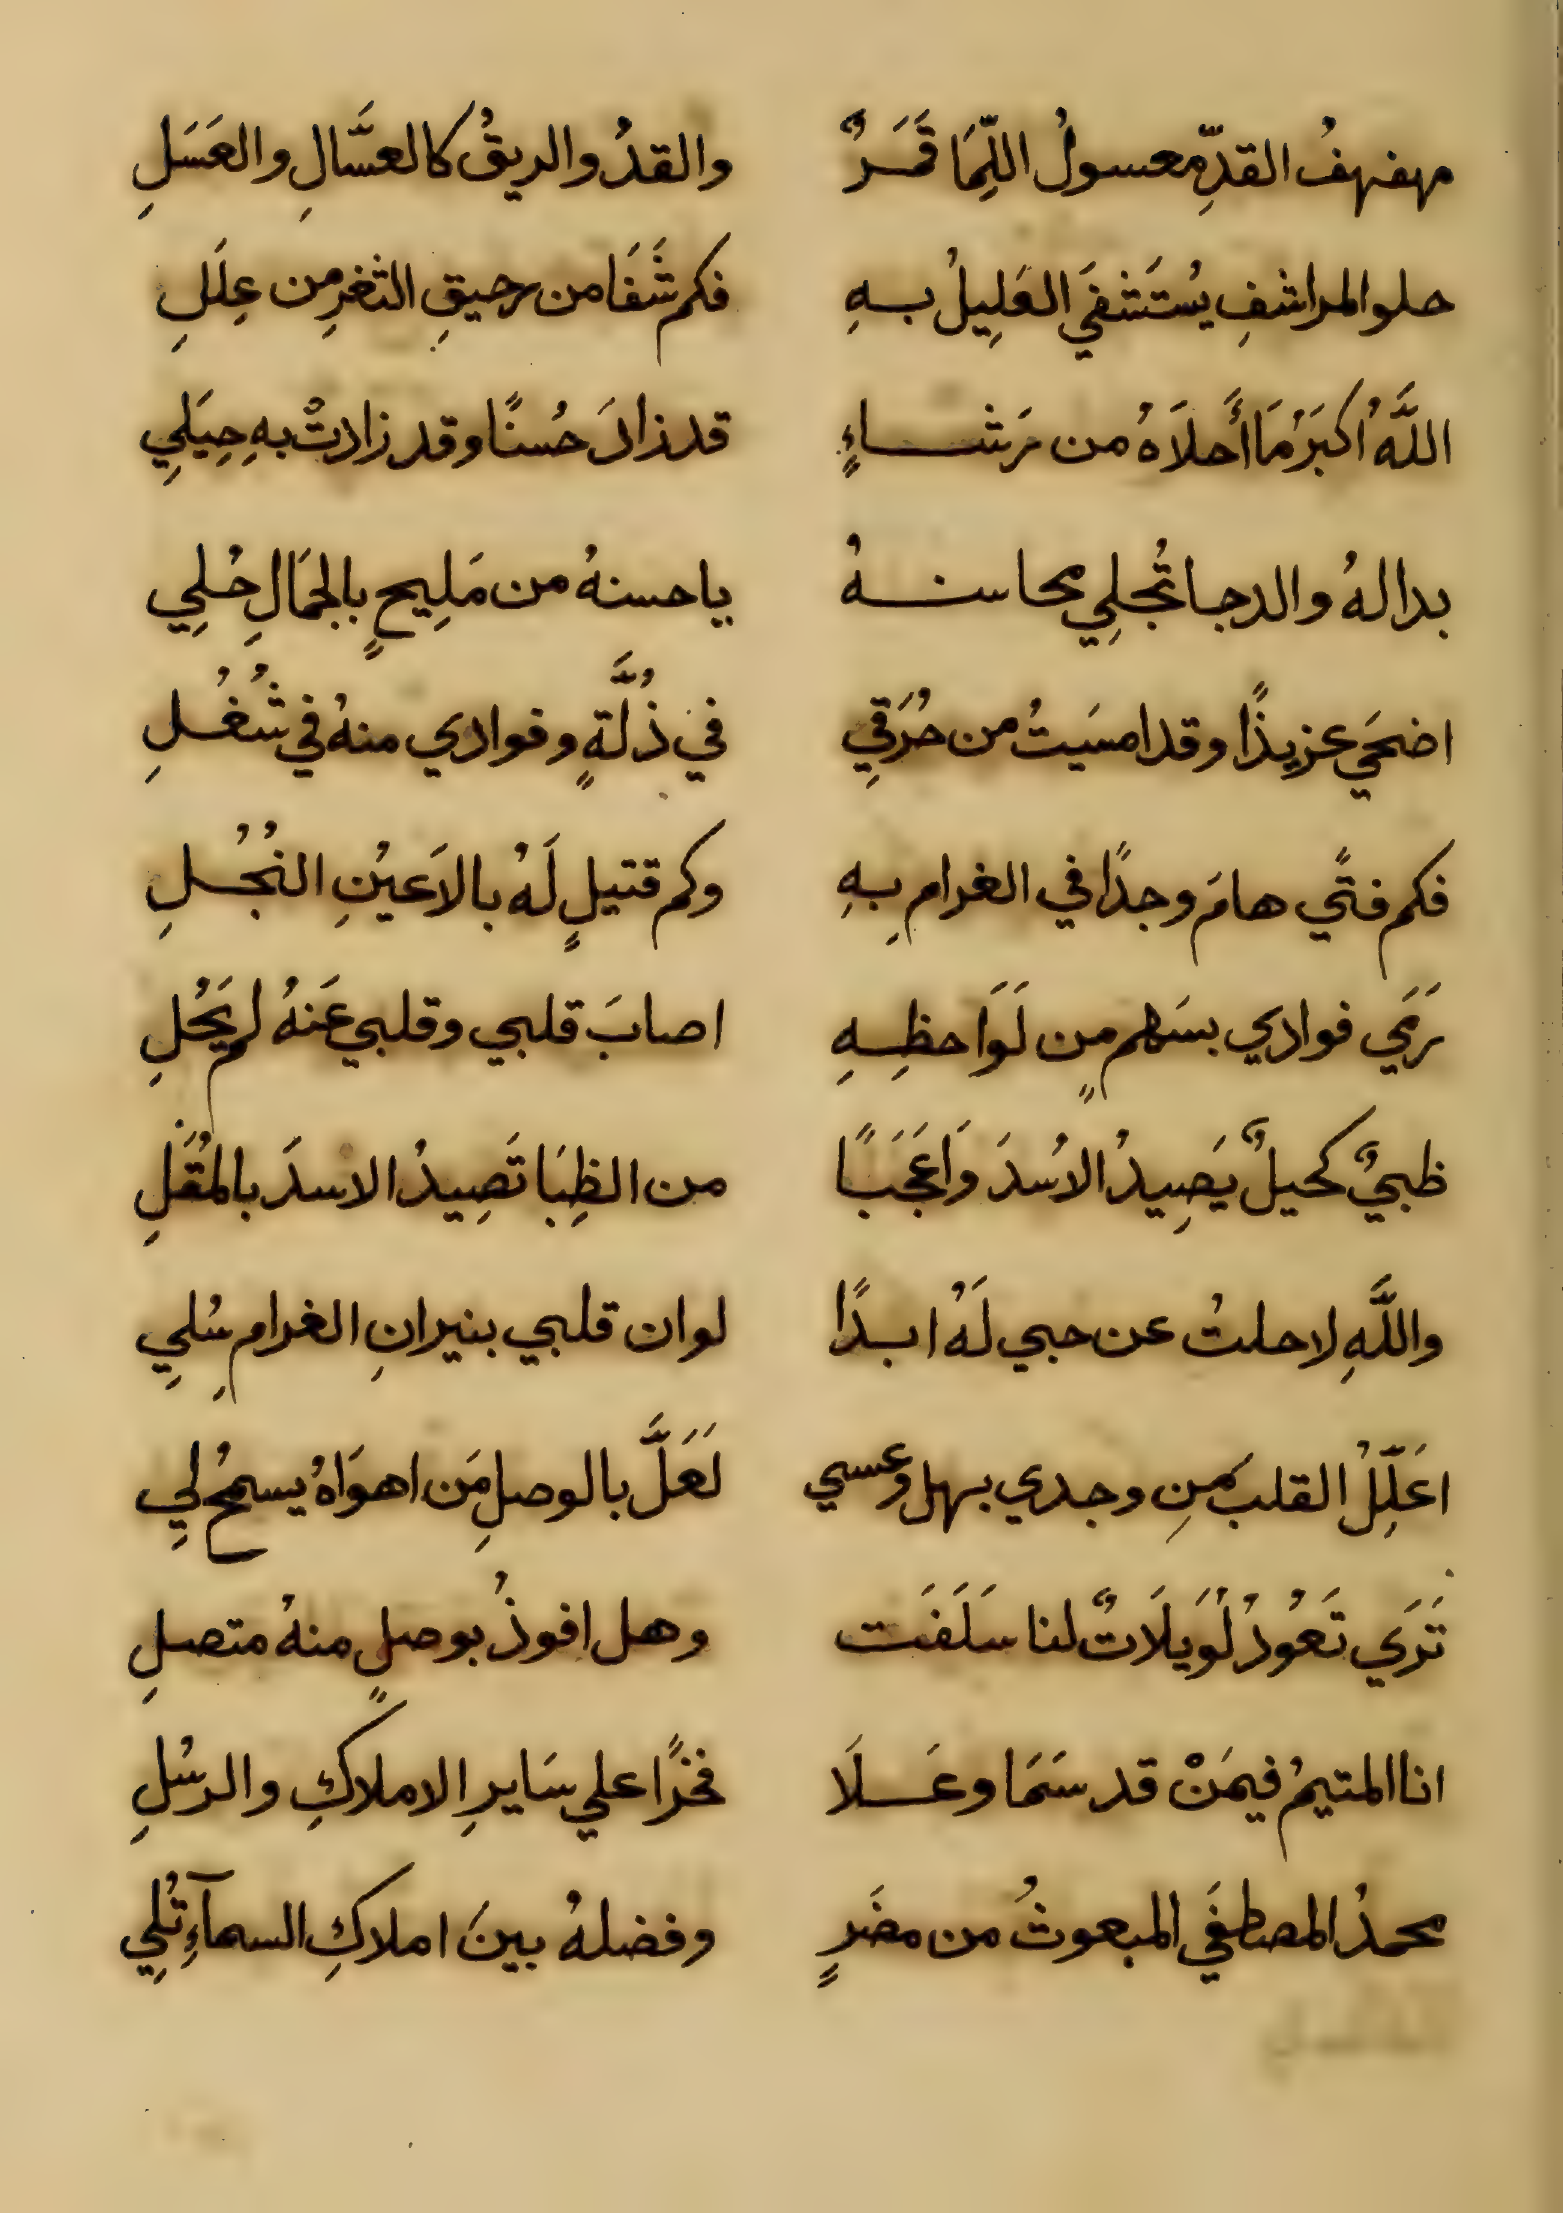 مهفهفُ القدِّ معسولُ اللِّمَا قَمَرٌ والقدُ والريقُ كالعسَّالِ والعَسَلِ
حلو المراشفِ يُستَشفَي العَلِيلُ بهِ فكم شَفَا من رحيقِ الثغرِ من عِلَلِ
اللَّهُ اكبَرُ مَا أَحلاَهُ من رَشاءٍ قد زادَ حُسنًا وقد زادتْ بهِ حِيَلِي
بدا لهُ والدجا تُجلِي محاسنهُ يا حسنهُ من مَلِيحٍ بالجَمَالِ حُلِي
اضحَي عزيذًا وقد امسَيتُ من حُرَقِي في ذُلَّةٍ وفوادي منهُ في شُغُلِ
فكم فتًي هامَ وجدًا في الغرام بِهِ وكم قتيلٍ لَهُ بالاَعيُنِ النُجُلِ
رَمَي فوادي بسَهمٍ من لَوَاحظِهِ اصابَ قلبي وقلبي عَنهُ لم يَحُلِ
ظبيٌ كحيلٌ يَصِيدُ الاُسدَ وَاعَجَبًا من الظِبَا تَصِيدُ الاسدَ بالمُقَلِ
واللَّهِ لا حلتُ عن حبي لَهُ ابدًا لو ان قلبي بنيرانِ الغرام سُلِي
اعَلِّلُ القلبَ مِن وجدي بهل وعسي لَعَلَّ بالوصلِ مَن اهوَاهُ يسمحُ لِي
تَرَي تَعُودُ لُوَيلَاتٌ لنا سَلَفَت وهل افوذُ بوصلٍ منهُ متصلِ
انا المتيمُ فيمَنْ قد سَمَا وعَلَا فخرًا علي سَايرِ الاملاكِ والرسُلِ
محمدُ المصطفَي المبعوثُ من مضَرٍ وفضلهُ بينَ املاكِ السمآءِ تُلِي